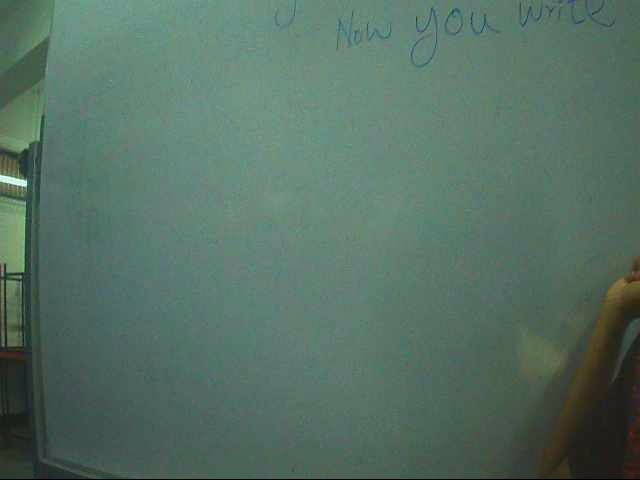 Now you write